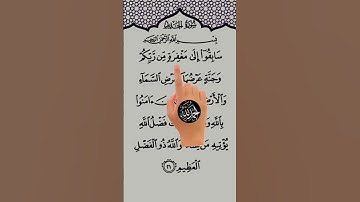 سُورَةُ الحَدِيد
بِسْمِ اللَّهِ الرَّحْمَٰنِ الرَّحِيمِ
سَابِقُوٓا إِلَىٰ مَغْفِرَةٍ مِّن رَّبِّكُمْ
وَجَنَّةٍ عَرْضُهَا السَّمَآءِ
وَالْأَرْضِ ءَامَنُوا
بِاللَّهِ فَضْلُ اللَّهِ
يُؤْتِيهِ وَاللَّهُ ذُو الْفَضْلِ
الْعَظِيمِ ٢١